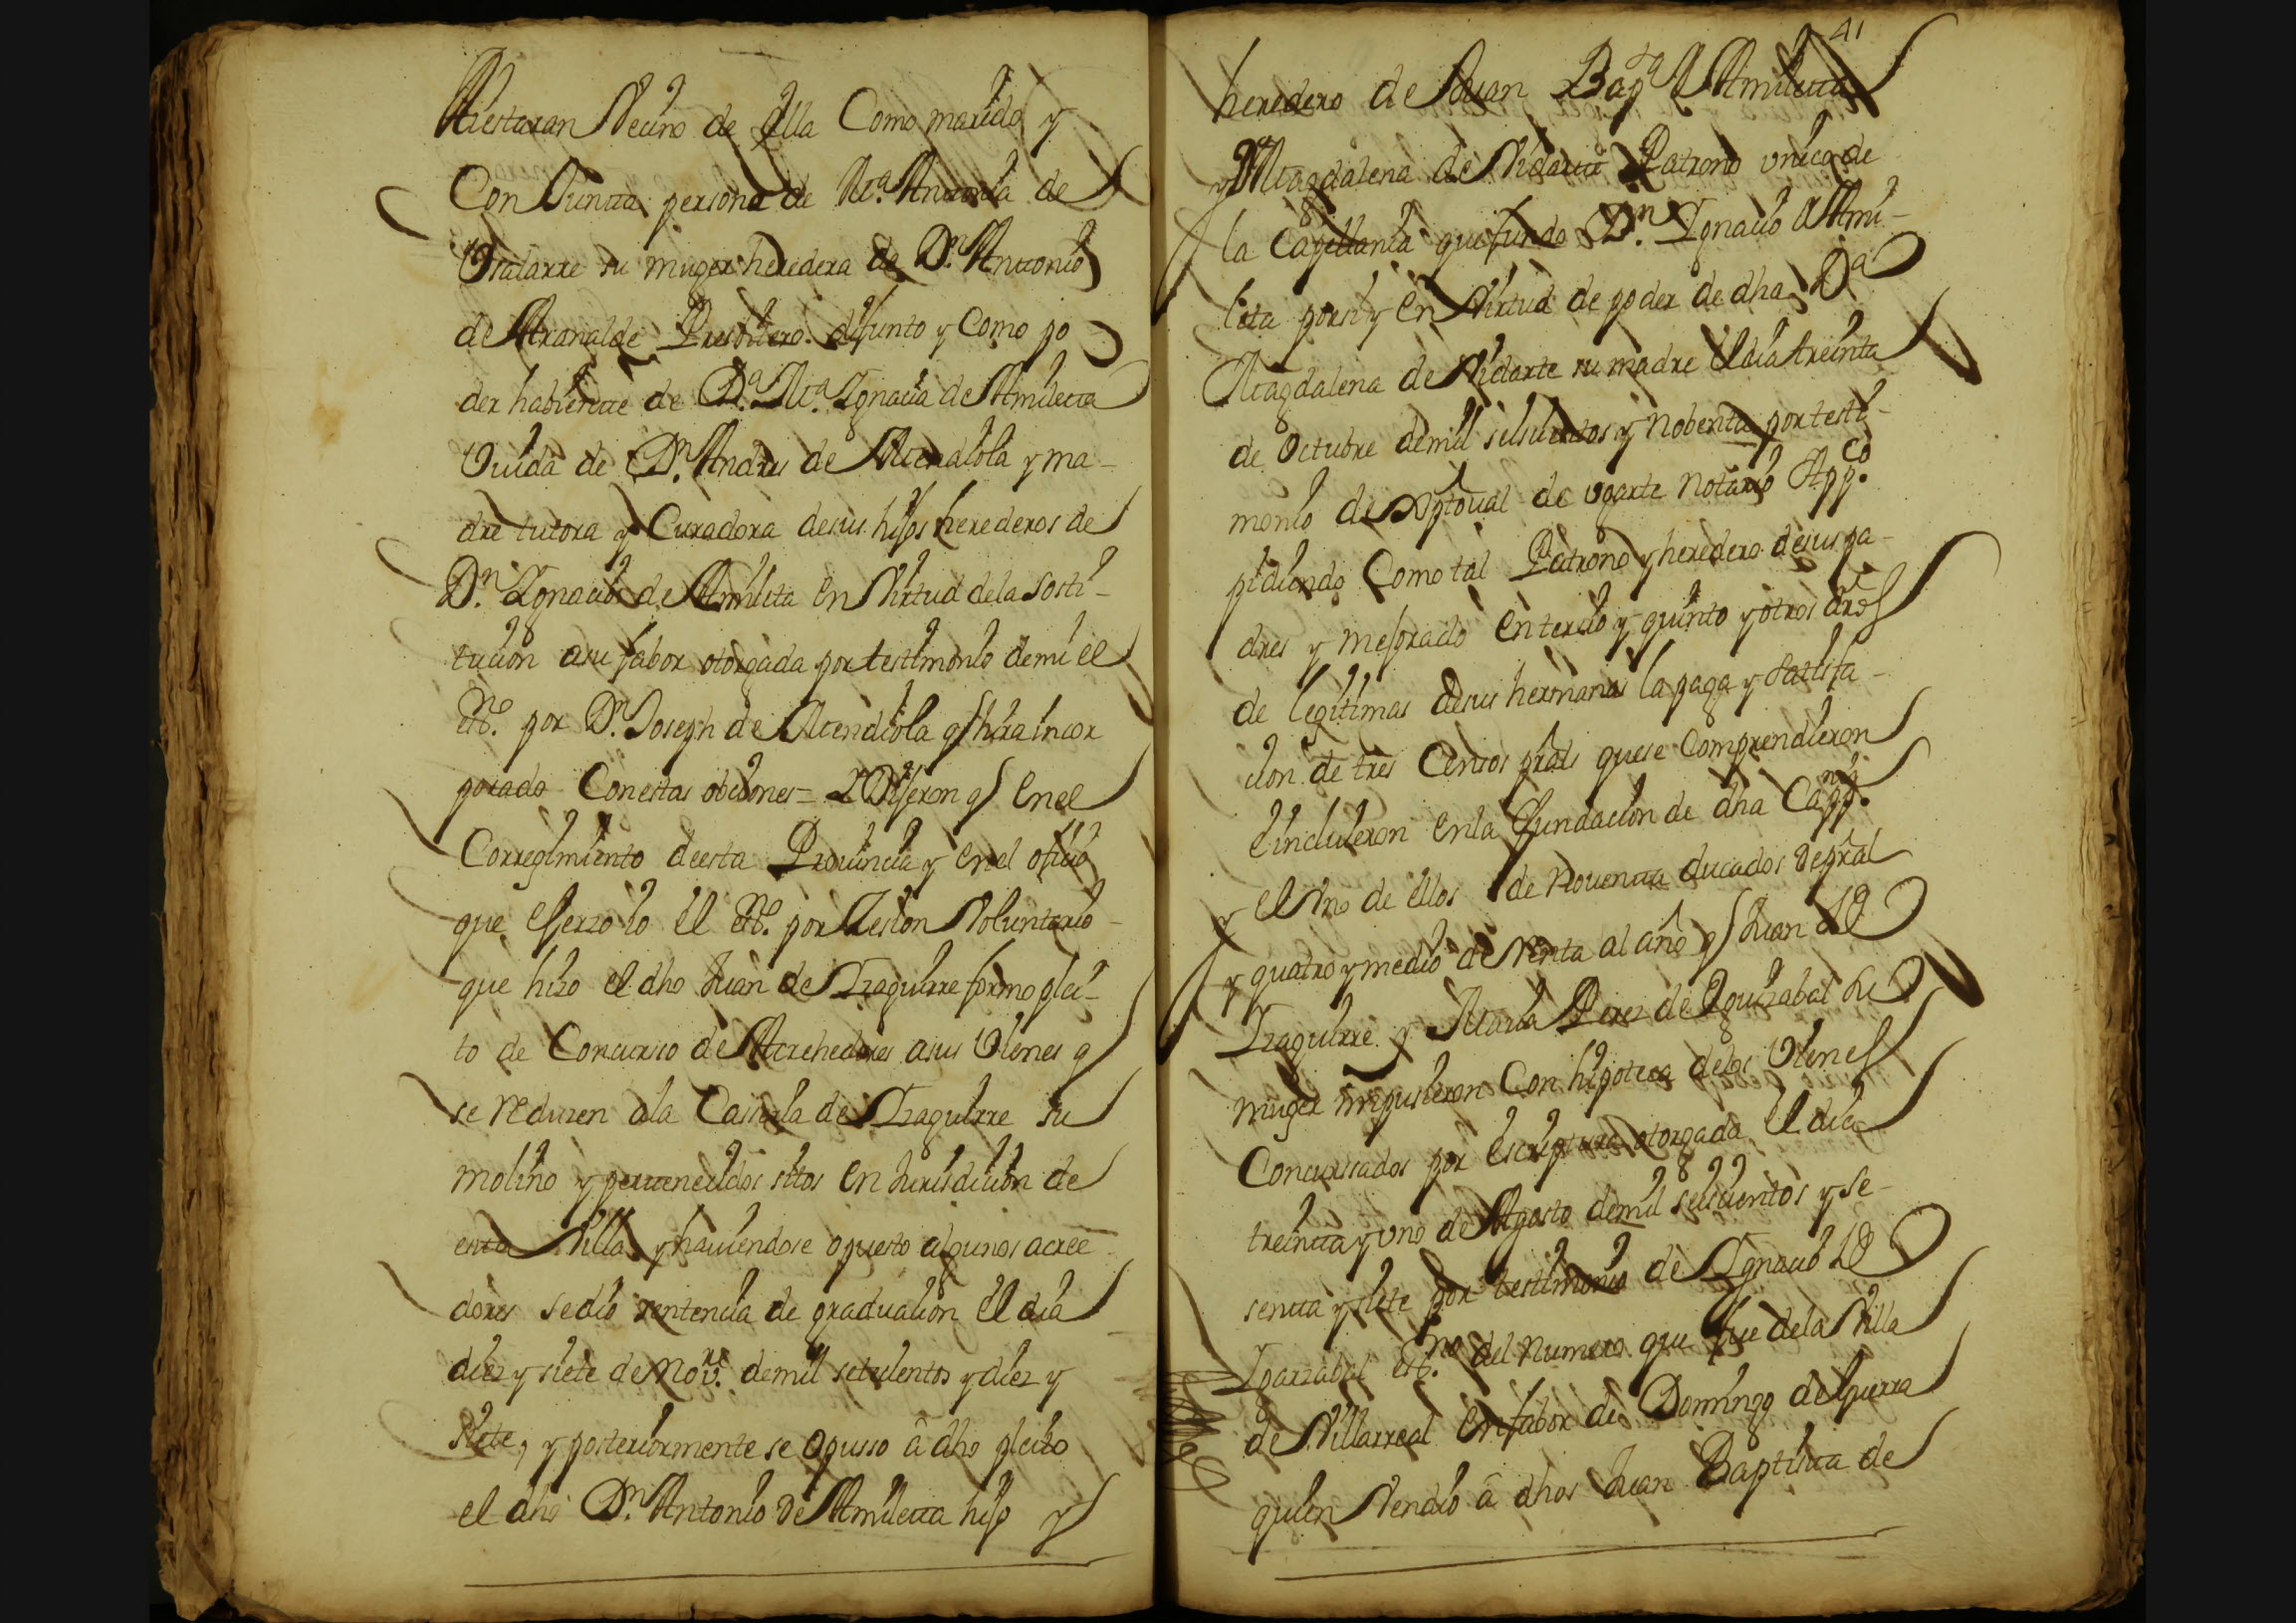 Aiestaran Vecino de ella Como marido y
Conjunta persona de Ma. Antonia de
Olalarre su muger heredera de Dn. Antonio
de Aranalde Presbitero difunto y Como po
der habiente de Da. Ma. Ignacia de Amilleta
Viuda de Dn. Andres de Mendiola y ma-
dre tutora y Curadora de sus hijos herederos de
Dn. Ignacio de Amilleta en Virtud de la sosti-
tucion a su fabor otorgada por testimonio de mi el
essno. por Dn. Joseph de Mendiola q hira incor
porado Con estas obciones = Dijeron q en el
Corregimiento de esta Provincia y en el oficio
que ejerzo io el essno. por Zesion Voluntario
que hizo el dho Juan de Izaguirre formo plei-
to de Concurso de Acrehedores a sus Vienes q
se reduzen a la Caseria de Izaguirre su
molino y pertenecidos sitos en Jurisdicion de
esta Villa y haviendose opuesto algunos acree
dores se dio sentencia de graduacion el dia
diez y siete de Nove. de mil setecientos y diez y
siete, y posteriormente se opusso â dho pleito
el dho Dn. Antonio de Amilleta hijo y
41
heredero de Juan Bapta Amilleta
y Magdalena de Vidarte Patrono unico de
la Capellania que fundo Dn. Ignacio Ami-
leta por si y en Virtud de poder de dha Da
Magdalena de Vidarte su madre el dia treinta
de Octubre de mil seiscientos y Nobenta por testi-
monio de Xptoual de ugarte Notario Appco.
pidiendo Como tal Patrono y heredero de sus pa-
dres y mejorado en tercio y quinto y otros dros
de legitimas de sus hermanas la paga y satisfa-
cion de tres Censos prales que se Comprendieron
e incluieron en la fundacion de dha Cappnia.
y el Vno de ellos de Noventa ducados de pral
y quatro y medio de Renta al año q Juan de
Izaguirre y Maria Perez de Eguizabal su
muger impusieron Con hipoteca de los Vienes
Concursados por escriptura otorgada el dia
treinta y uno de Agosto de mil seiscientos y se-
senta y siete por testimonio de Ignacio de
Igarzabal essno. del Numero que fue de la Villa
de Villarreal en fabor de Domingo de Iguerra
quien Vendio â dhos Juan Baptista de